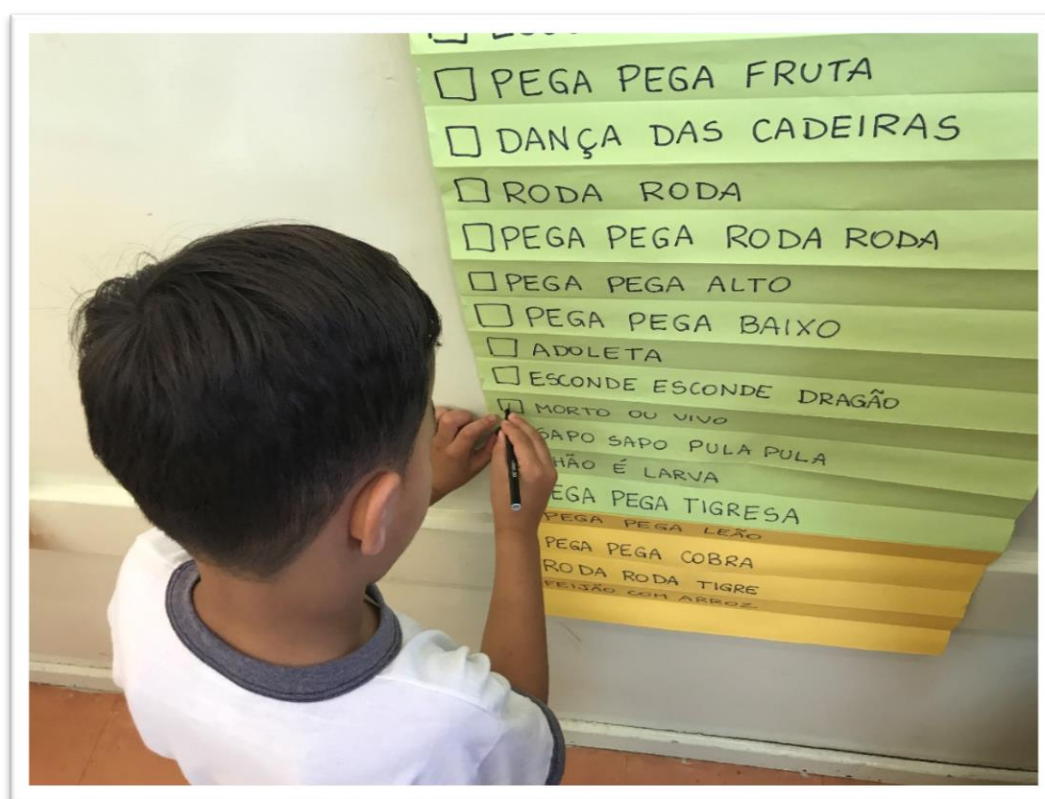 PEGA PEGA FRUTA
DANÇA DAS CADEIRAS
RODA RODA
PEGA PEGA RODA RODA
PEGA PEGA ALTO
PEGA PEGA BAIXO
ADOLETA
ESCONDE ESCONDE DRAGÃO
MORTO OU VIVO
SAPO SAPO PULA PULA
É LARVA
PEGA TIGRESA
PEGA PEGA LEÃO
PEGA PEGA COBRA
RODA RODA TIGRE
FEIJÃO COM ARROZ